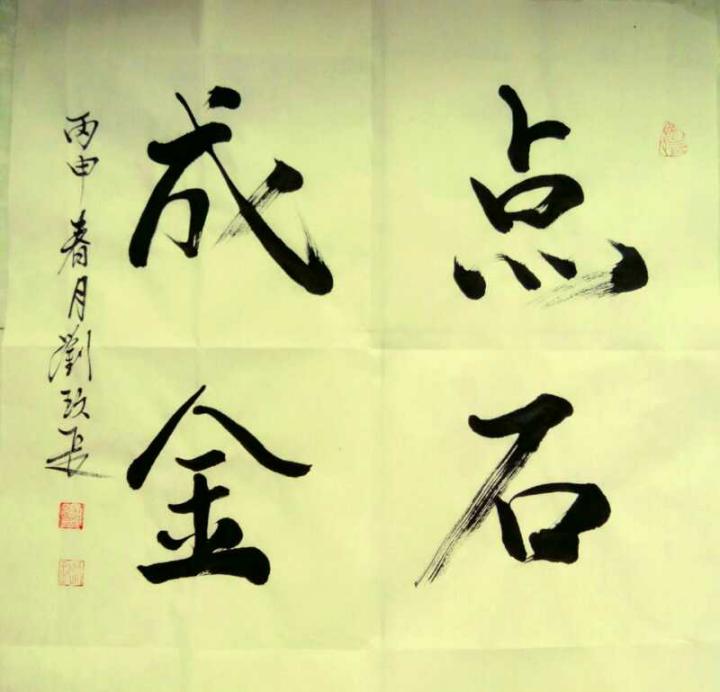 点石
成金
丙申春月劉玖辰